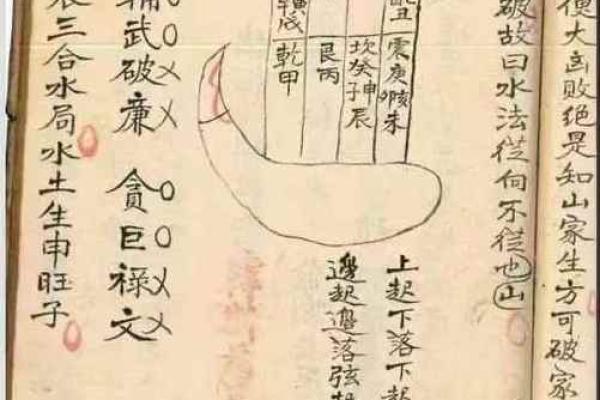 便大凶敗绝是知山家生方可破家
破故曰水法從向不從也山
丑
震庚亥未
坎癸申子辰
艮丙
乾甲
上起下落下起
邊起邊落弦起
輔武破廉 貪巨禄文
辰三合水局水土生申旺子